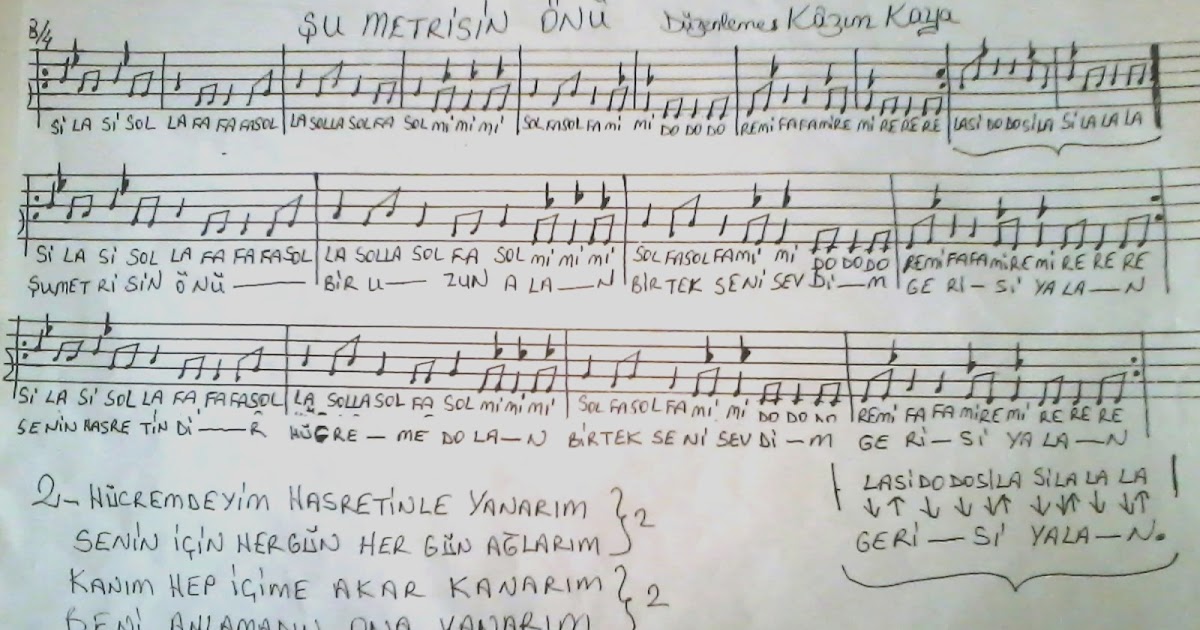 ŞU METRİSİN ÖNÜ Düzenlemes Kâzım Kaya
3/4
Sİ LA Sİ SOL LA FA FA FASOL LA SOLLA SOL FA SOL Mİ Mİ Mİ SOL FASOL FA Mİ Mİ DO DO DO REMİ FA FAMİRE Mİ RE RE RE LASİ DO DOSİLA Sİ LA LA LA
Sİ LA Sİ SOL LA FA FA FASOL LA SOLLA SOL FA SOL Mİ Mİ Mİ SOL FASOL FAMİ Mİ DO DO DO REMİ FAFAMİRE Mİ RE RE RE
ŞUMETRİSİN ÖNÜ BİR U— ZUN A LA—N BİR TEK SENİ SEV Dİ—M GE Rİ—Sİ YALA—N
Sİ LA Sİ SOL LA FA FA FASOL LA SOLLA SOL FA SOL Mİ Mİ Mİ SOL FASOL FA Mİ Mİ DO DO REMİ FA FA MİRE Mİ RE RE RE
SENİN HASRE TİN Dİ—R HÜCRE—ME DO LA—N BİRTEK SE Nİ SEV Dİ—M GE Rİ—Sİ YA LA—N
LASİ DO DOSİLA SİLA LA LA
GERİ—Sİ YALA—N.
2- HÜCREMDEYİM HASRETİNLE YANARIM } 2
SENİN İÇİN HERGÜN HER GÜN AĞLARIM
KANIM HEP İÇİME AKAR KANARIM } 2
BENİ ANLAMADIN ONA YANARIM